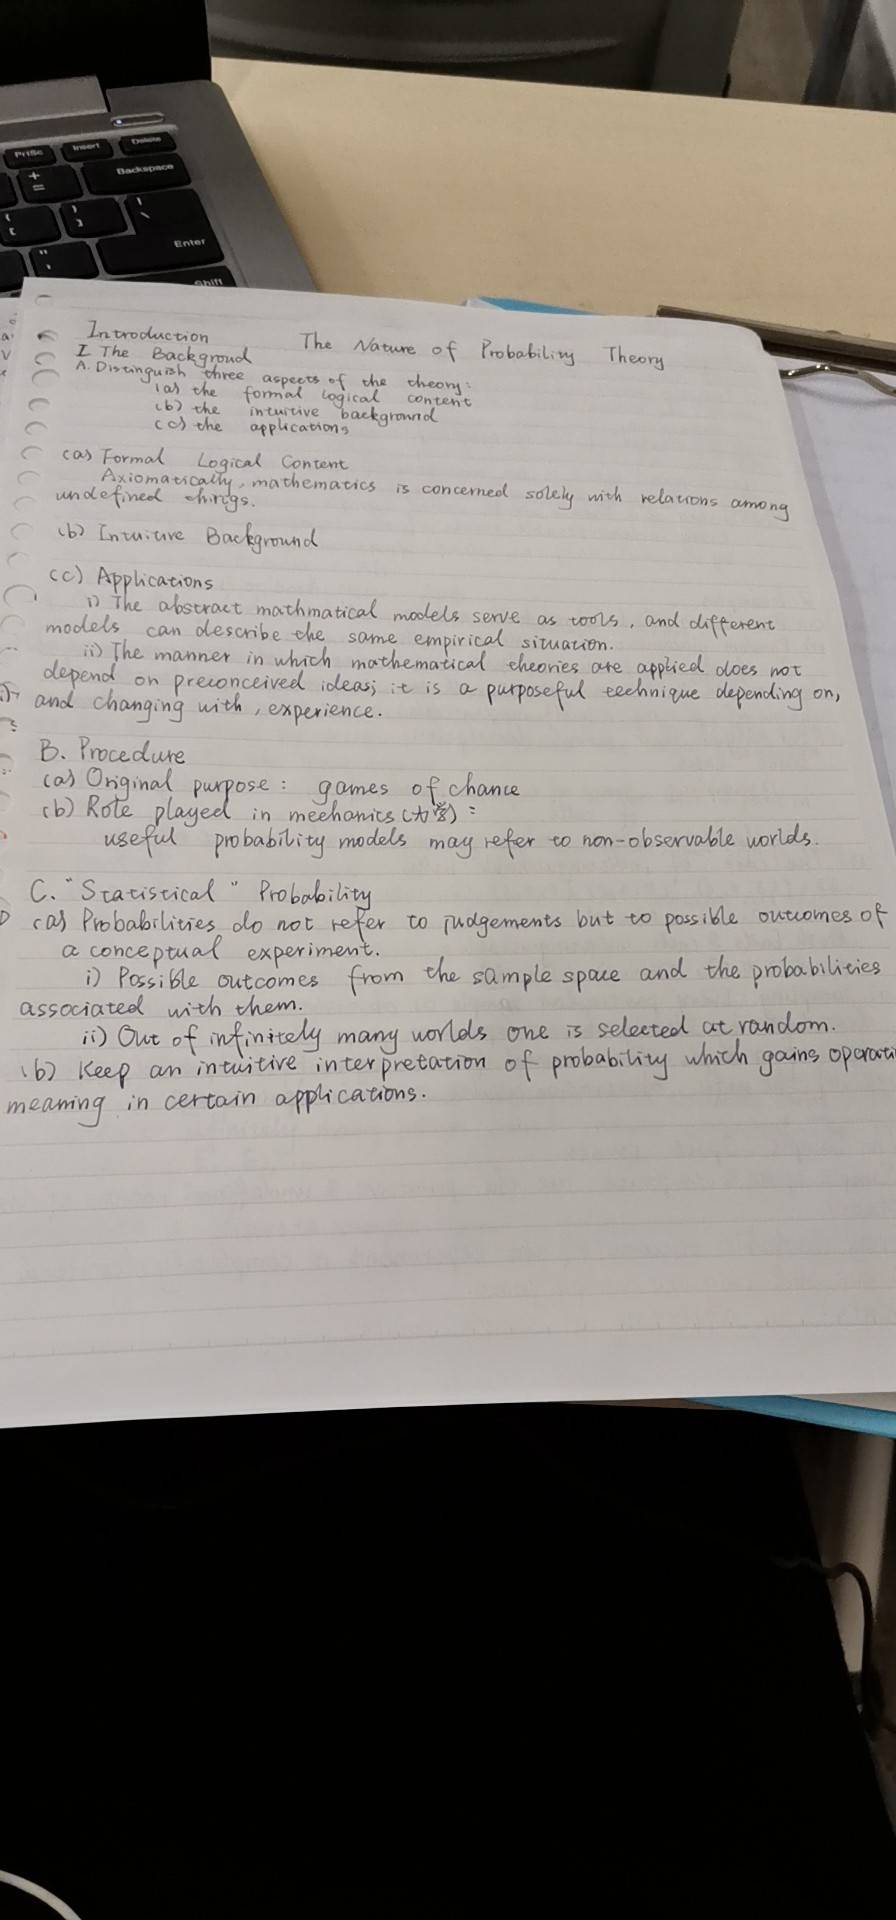 PrtSc Insert Delete
+ = Backspace
Enter
Shift
Introduction The Nature of Probability Theory
I The Backgroud
A. Distinguish three aspects of the theory:
(a) the formal logical content
(b) the intuitive background
(c) the applications
(a) Formal Logical Content
Axiomatically, mathematics is concerned solely with relations among
undefined things.
(b) Intuitive Background
(c) Applications
i) The abstract mathmatical models serve as tools, and different
models can describe the same empirical situation.
ii) The manner in which mathematical theories are applied does not
depend on preconceived ideas; it is a purposeful technique depending on,
and changing with, experience.
B. Procedure
(a) Original purpose: games of chance
(b) Role played in mechanics (力学):
useful probability models may refer to non-observable worlds.
C. "Statistical" Probability
(a) Probabilities do not refer to judgements but to possible outcomes of
a conceptual experiment.
i) Possible outcomes from the sample space and the probabilities
associated with them.
ii) Out of infinitely many worlds one is selected at random.
(b) Keep an intuitive interpretation of probability which gains operati
meaning in certain applications.